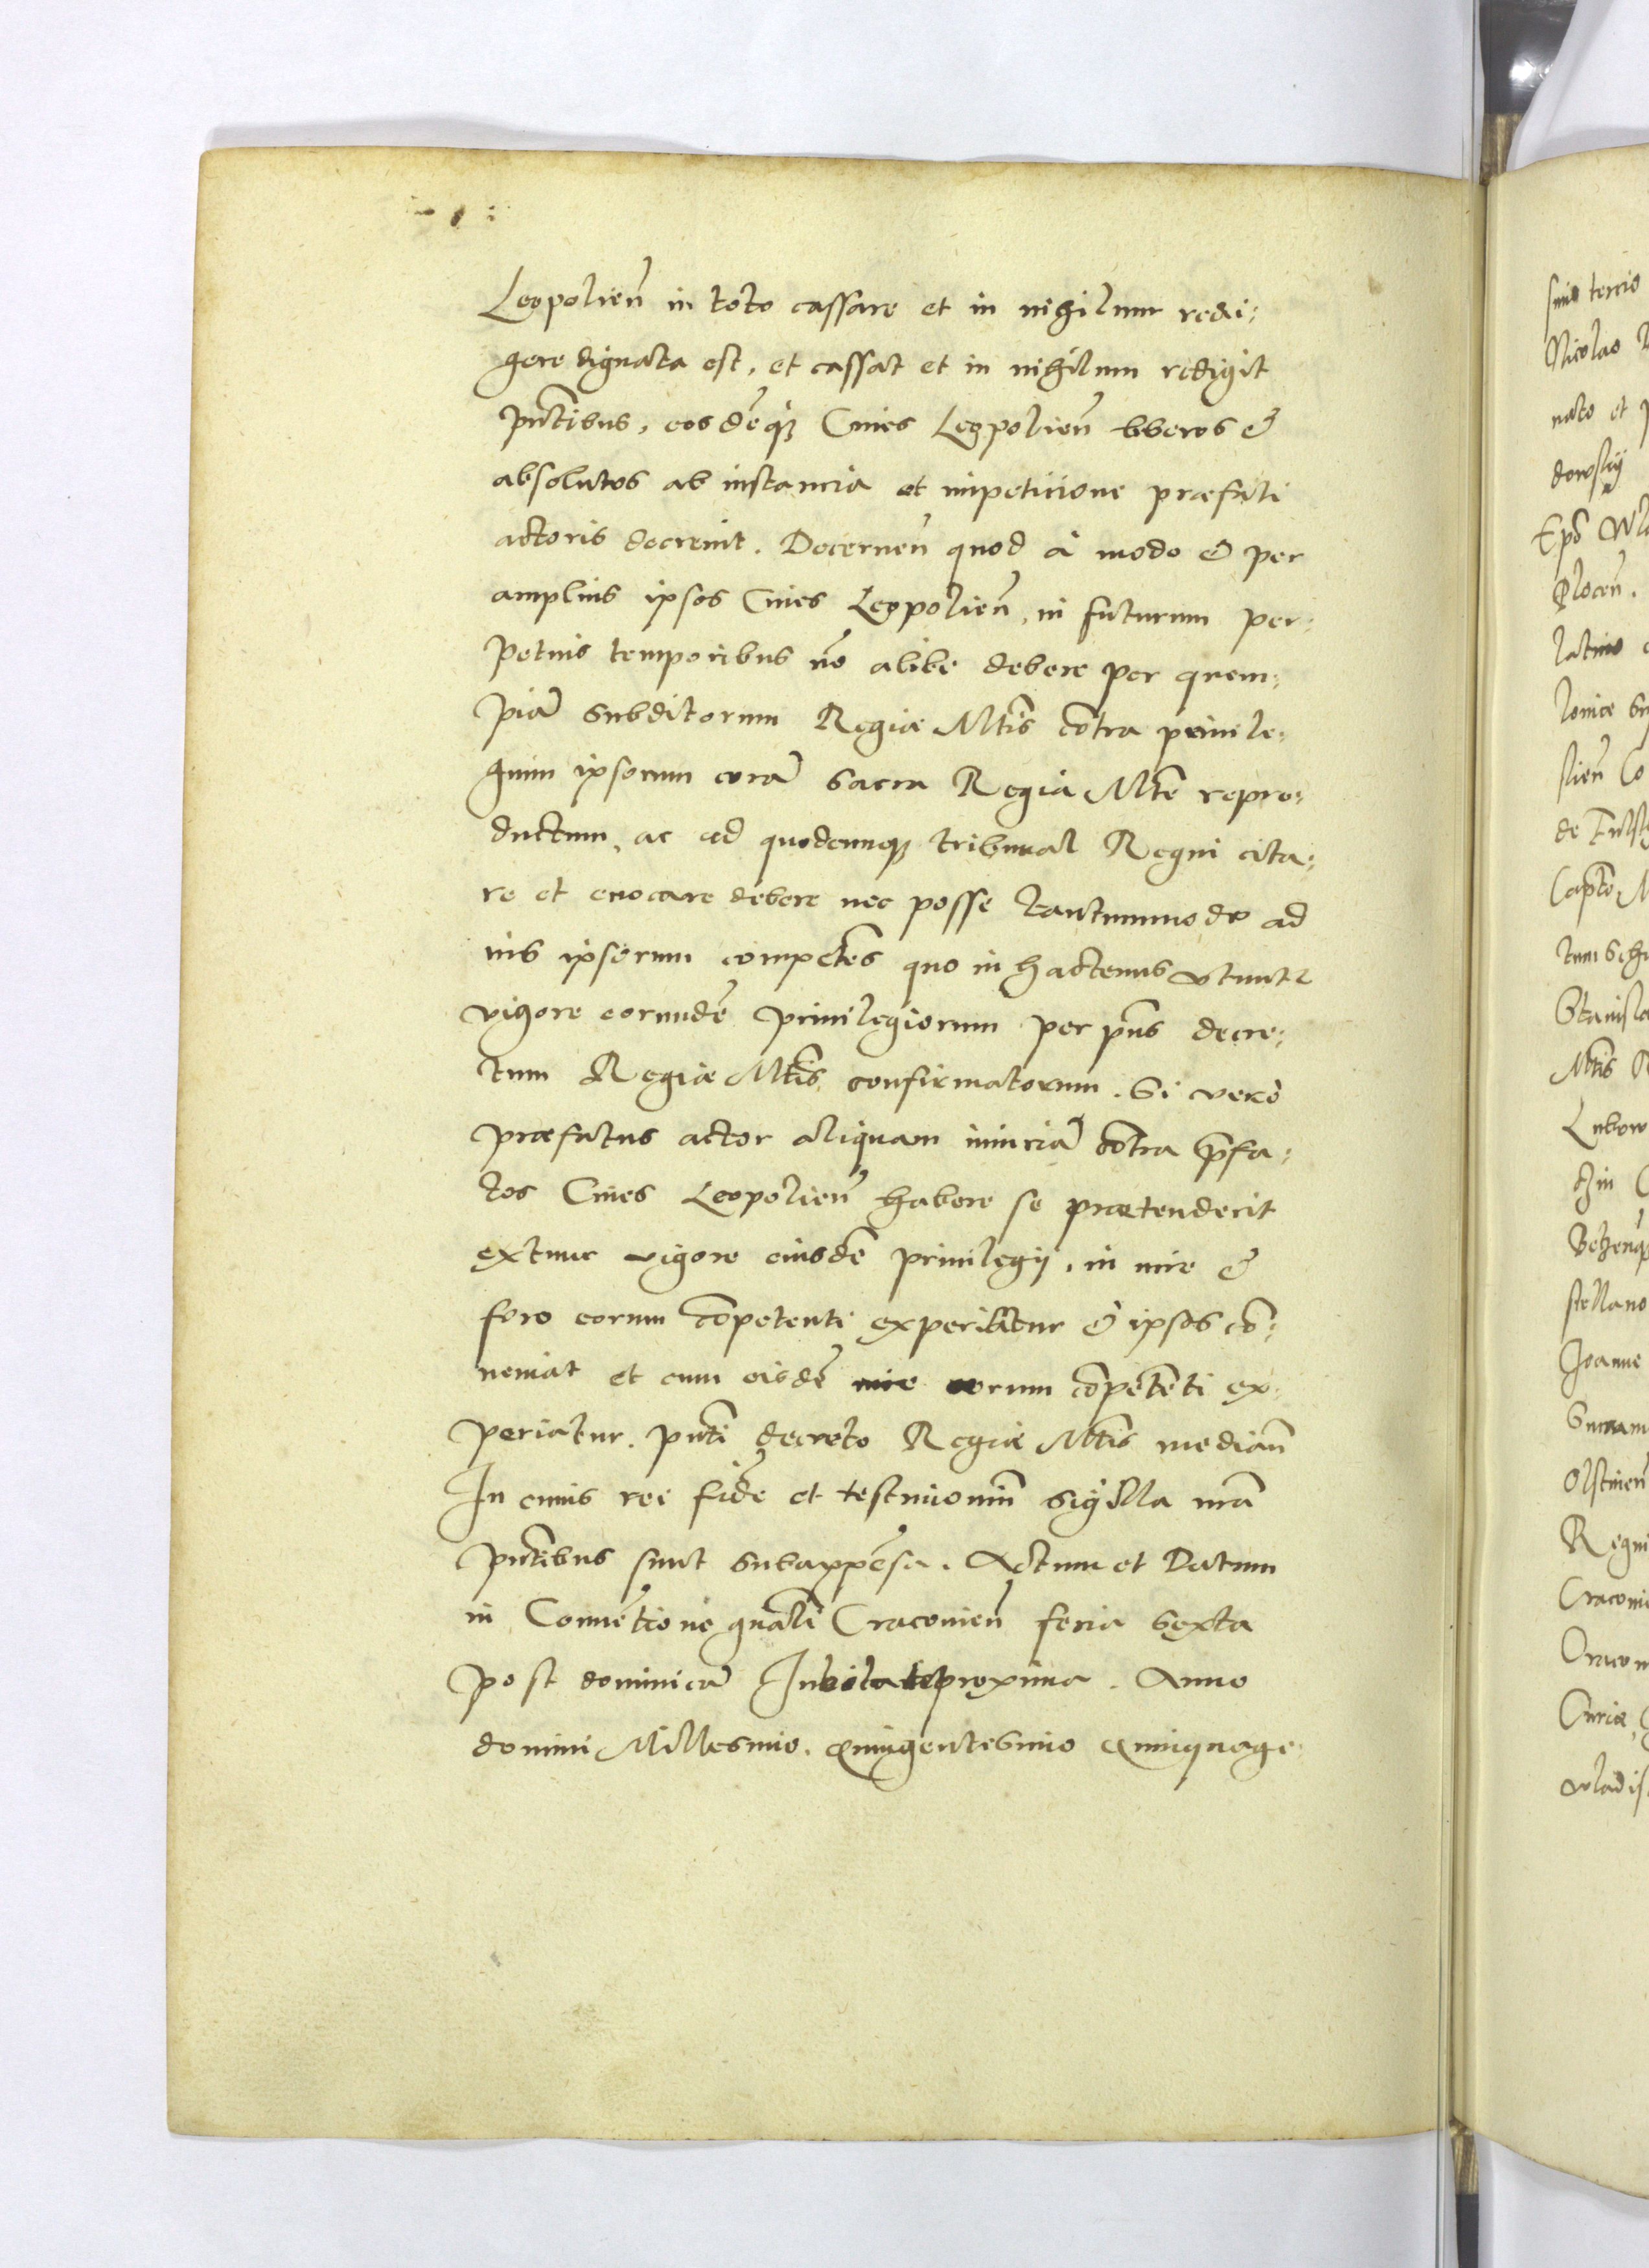 Leopolien̄ in toto cassare et in nihilum redi:
gere dignata est, et cassat et in nihilum redigit
pn̄tibus, eosdēq3 Ciues Leopolien̄ liberos &
absolutos ab instancia et impeticione præfati
actoris decreuit. Decernen̄ quod à modo & per
amplius ipsos Ciues Leopolien̄, in futurum per:
petuis temporibus nō alibi debere per quem:
piā subditorum Regiæ Mtis cōtra priuile:
gium ipsorum corā sacra Regia Mte repro:
ductum, ac ad quodcunq3 tribunal Regni cita:
re et euocare debere nec posse tantummodo ad
ius ipsorum competēs quo in hactenus vtunt2
vigore eorundē priuilegiorum per pn̄s decre:
tum Regiæ Mtis confirmatorum. Si vero
præfatus actor aliquam iniuriā cōtra p̄fa:
tos Ciues Leopolien̄ habere se prætenderit
extunc vigore eiusdē priuilegij, in iure &
foro eorum cōpetenti experiatur & ipsos cō:
ueniat et cum eisdē iure eorum cōpetēti ex:
periatur. pn̄ti decreto Regiæ Mtis median̄
In cuius rei fidē et testimoniū sigilla nr̄a
pn̄tibus sunt subappēsa. Actum et Datum
in Conuētione gn̄ali Cracouien̄ feria sexta
post dominicā Iubilate proxima. Anno
domini Millesimo. Quingentesimo Quinquage:
simo tercio
Nicolao
nato et
dowskij
Ep̄o Wla
Plocen̄.
de
Capto M
Stanisla
Mtis R
Lubow
stellano
Ioanne
Regni
Cracouie
Curiæ
vladis